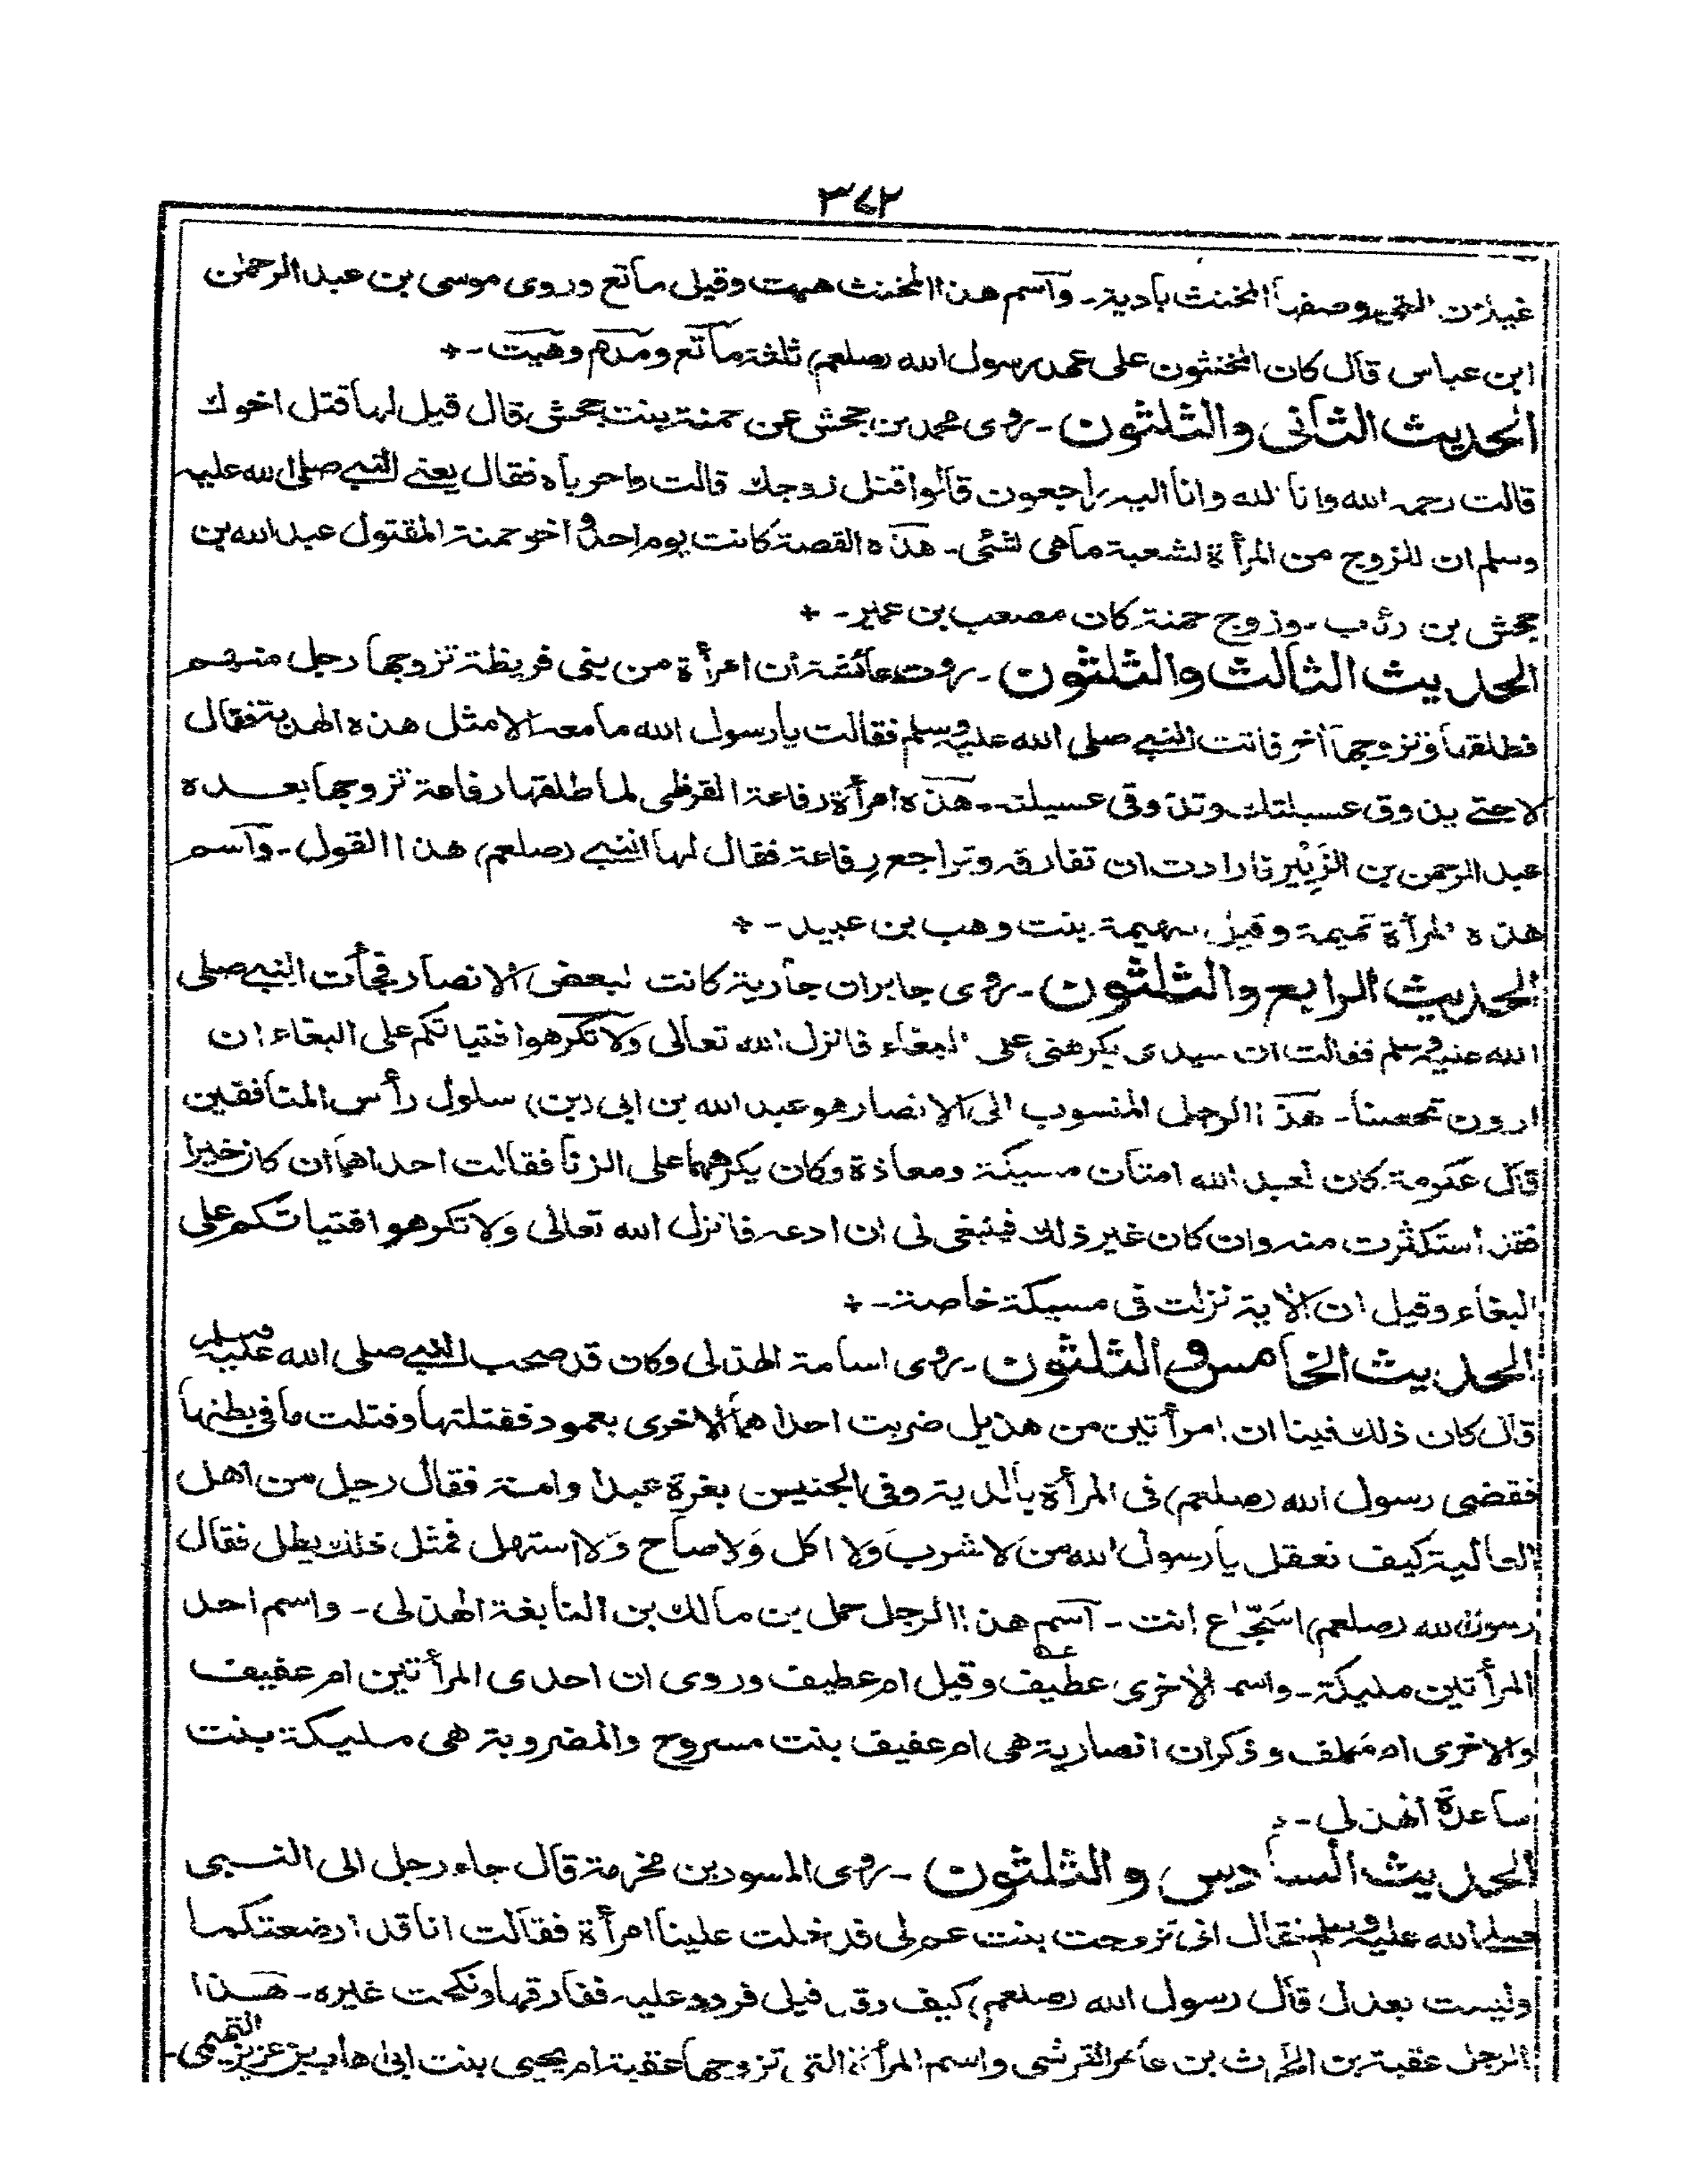 ٣٧٢
غيلان الثقفي وصفها المخنث بادية - وآسم هذا المخنث هيت وقيل ماتع وروى موسى بن عبد الرحمٰن
ابن عباس قال كان المخنثون على عهد رسول الله (صلعم) ثلثة ماتع وهدم وهيت -
الحديث الثاني والثلثون - روى محمد بن جحش عن حمنة بنت جحش قال قيل لها قتل اخوك
قالت رحمه الله وانا لله وانا اليه راجعون قالوا قتل زوجك قالت واحرباه فقال يعنى النبي صلى الله عليه
وسلم ان للزوج من المرأة لشعبة ما هى لشئ - هذه القصة كانت يوم احد واخو حمنة المقتول عبد الله بن
جحش بن رئاب - وزوج حمنة كان مصعب بن عمير -
الحديث الثالث والثلثون - روت عائشة ان امرأة من بنى قريظة تزوجها رجل منهم
فطلقها وتزوجها آخر فاتت النبي صلى الله عليه وسلم فقالت يا رسول الله ما معه الا مثل هذه الهدبة فقال
لا حتى يذوق عسيلتك وتذوقى عسيلته - هذه امرأة رفاعة القرظى لما طلقها رفاعة تزوجها بعده
عبد الرحمن بن الزَبِيْر فارادت ان تفارقه وتراجع رفاعة فقال لها النبي (صلعم) هذا القول - وآسم
هذه المرأة تميمة وقيل سهيمة بنت وهب بن عبيد -
الحديث الرابع والثلثون - روى جابر ان جارية كانت لبعض الانصار فجأت النبي صلى
الله عليه وسلم فقالت ان سيدى يكرهنى على البغاء فانزل الله تعالى ولا تكرهوا فتياتكم على البغاء ان
اردن تحصنا - هذا الرجل المنسوب الى الانصار هو عبد الله بن ابى (بن) سلول رأس المنافقين
قال عكرمة كان لعبد الله امتان مسيكة ومعاذة وكان يكرههما على الزنا فقالت احداهما ان كان خيرا
فقد استكثرت منه وان كان غير ذلك فينبغى لى ان ادعه فانزل الله تعالى وَلا تكرهوا فتياتكم على
البغاء وقيل ان الاية نزلت فى مسيكة خاصة -
الحديث الخامس والثلثون - روى اسامة الهذلى وكان قد صحب النبي صلى الله عليه وسلم
قال كان ذلك فينا ان امرأتين من هذيل ضربت احداهما الاخرى بعمود فقتلتها وقتلت ما فى بطنها
فقضى رسول الله (صلعم) فى المرأة بالدية وفى الجنيسن بغرة عبدا وامة فقال رجل من اهل
العالية كيف نعقل يا رسول الله من لا شرب وَلا اكل وَلا صاح وَلا استهل فمثل ذلك يطل فقال
رسول الله (صلعم) اسَجّاع انت - آسم هذا الرجل حمل بن مالك بن النابغة الهذلى - واسم احد
المرأتين مليكة - واسم الاخرى عطيف وقيل ام عطيف وروى ان احدى المرأتين ام عفيف
والاخرى ام مكلف وذكر ان انصارية هى ام عفيف بنت مسروح والمضروبة هى مليكة بنت
ساعدة الهذلى -
الحديث السادس والثلثون - روى المسور بن مخرمة قال جاء رجل الى النبى
صلى الله عليه وسلم فقال انى تزوجت بنت عم لى قد خلت علينا امرأة فقالت انا قد ارضعتكما
وليست بعدل قال رسول الله (صلعم) كيف وقد قيل فردد عليه ففارقها ونكحت غيره - هذا
الرجل عقبة بن الحرث بن عامر القرشى واسم المرأة التى تزوجها عقبة ام يحيى بنت ابى اهاب بن عزيز التميمى -